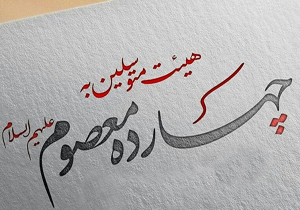 هیئت متوسلین به
چهارده معصوم
علیهم السلام